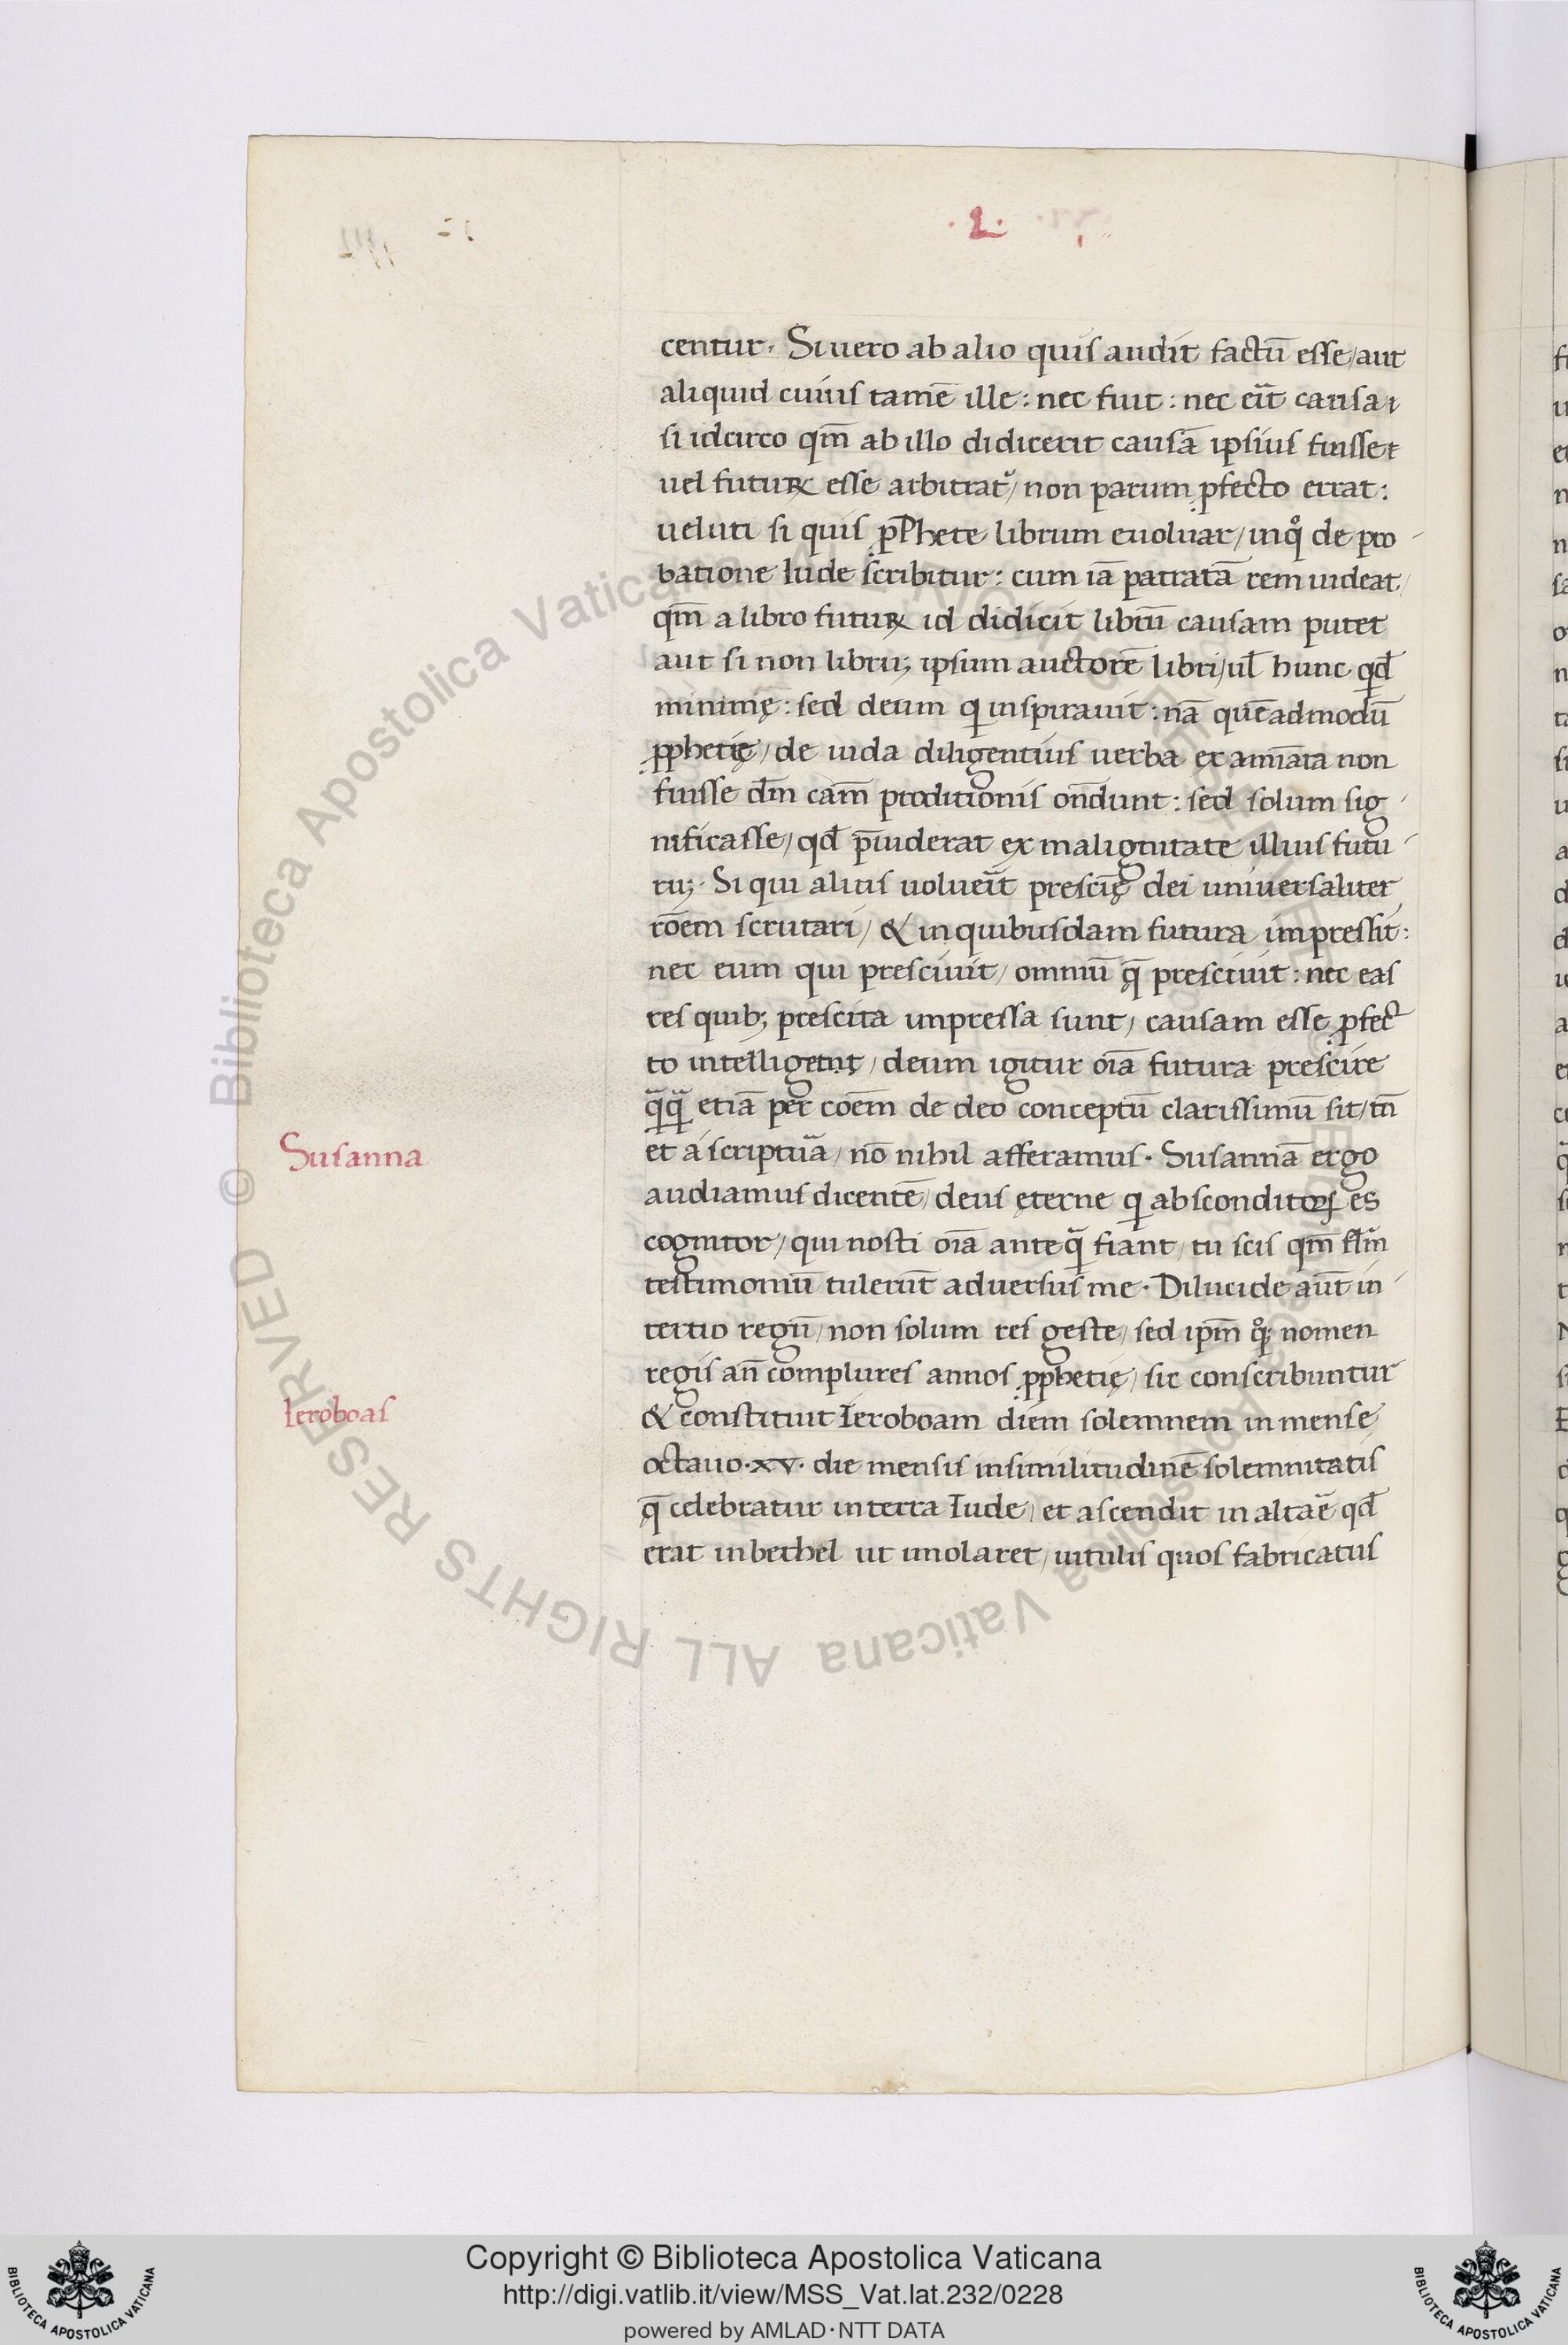 .2.
centur. Si uero ab alio quis audit factū esse/aut
aliquid cuius tamē ille: nec fuit: nec eīt causa
si idcirco qm̄ ab illo didicerit causā ipsius fuisse
uel futuꝝ esse arbitrat᷑/ non parum ꝓfecto errat:
ueluti si quis librum euoluat/ inqͦ de pro
batione Iude scribitur: cum iā patratā rem uideat/
qm̄ a libro futuꝝ id didicit librū causam putet
aut si non libruꝫ ipsum auctorē libri/ul̄ hunc qd̄
minimę: sed deum qui inspirauit: nā quēadmodū
ꝓphetię/ de iuda diligentius uerba examīata non
fuisse dm̄ cam̄ proditionis on̄dunt: sed solum sig
nificasse/ qd̄ p̄uiderat ex malignitate illius futu
ruꝫ. Si qui alius uolueīt prescīę dei uniuersaliter
rōem scrutari/ & in quibusdam futura impressit:
nec eum qui presciuit/ omniū q̄ presciuit: nec eas
res quibꝫ prescita impressa sunt/ causam esse ꝓfec
to intelligent/ deum igitur oīa futura prescire
q̄q̄ etiā per coēm de deo conceptū clarissimū sit/ tn̄
et a scriptuᷓa/ nō nihil afferamus. Susannā ergo
audiamus dicentē/ deus ęterne qui absconditoꝝ es
cognitor/ qui nosti oīa anteq̄ fiant/ tu scis qm̄ fl̄m
testimoniū tulerūt aduersus me. Dilucide aūt in
tertio regū/ non solum res geste/ sed ipm̄ qͦꝫ nomen
regis an̄ complures annos ꝓphetię/ sic conscribuntur
& constituit Ieroboam diem solemnem in mense
octauo .xv. die mensis in similitudinē solemnitatis
q̄ celebratur in terra Iude/ et ascendit in altaē qd̄
erat in bethel ut imolaret/ uitulis quos fabricatus
Susanna
Ieroboas
© Biblioteca Apostolica Vaticana ALL RIGHTS RESERVED
Copyright © Biblioteca Apostolica Vaticana
http://digi.vatlib.it/view/MSS_Vat.lat.232/0228
powered by AMLAD·NTT DATA
BIBLIOTECA APOSTOLICA VATICANA
BIBLIOTECA APOSTOLICA VATICANA